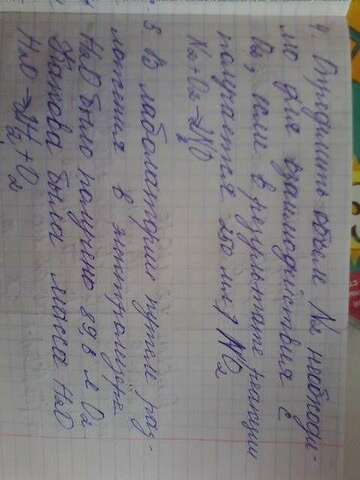 4. Определить объем N₂ необходи-
мо для взаимодействия с
O₂, если в результате реакции
получается 250 мл NO₂
N₂ + O₂ → 2NO
5 В лаборатории путем раз-
ложения в электролизере
H₂O было получено 89,6 л O₂
Какова была масса H₂O
H₂O → 2H₂ + O₂